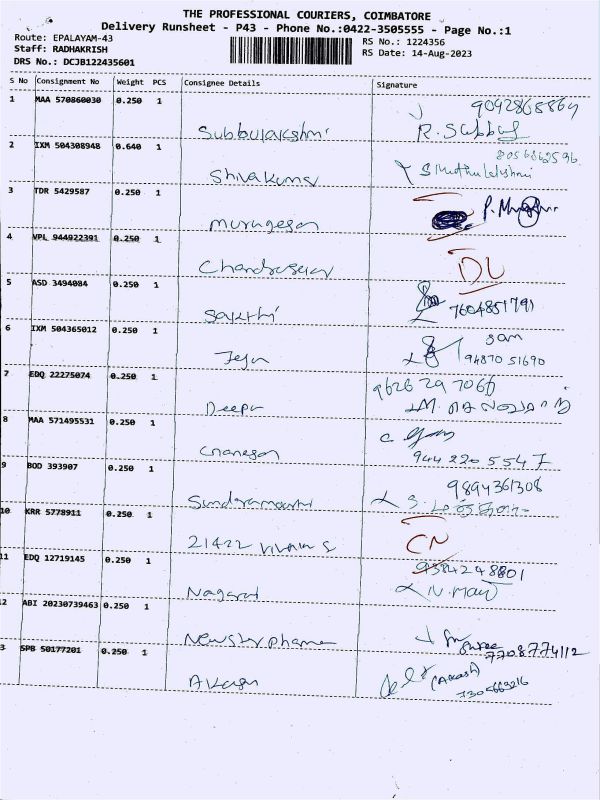 THE PROFESSIONAL COURIERS, COIMBATORE
Delivery Runsheet - P43 - Phone No.:0422-3505555 - Page No.:1
Route: EPALAYAM-43
RS No.: 1224356
Staff: RADHAKRISH
RS Date: 14-Aug-2023
DRS No.: DCJB122435601
S No Consignment No Weight PCS Consignee Details Signature
1 MAA 570860030 0.250 1 Subbulakshmi R. Subbu
2 IXM 504308948 0.640 1 Shivakumar S Muthulakshmi
3 TDR 5429587 0.250 1 Murugesan
4 VPL 944922391 0.250 1 Chandrasekar DL
5 ASD 3494084 0.250 1 Sakthi 7604851791
6 IXM 504365012 0.250 1 Jega 94870 51690
7 EDQ 22275074 0.250 1 Deepa 9626 297066
8 MAA 571495531 0.250 1 Gnanesan 944 220 5547
9 BOD 393907 0.250 1 Sundaramoorthi 9894361308
10 KRR 5778911 0.250 1 21422 CN
11 EDQ 12719145 0.250 1 Nagaraj 9384248801
2 ABI 20230739463 0.250 1 7708774112
3 SPB 50177201 0.250 1 Akash (Akash)